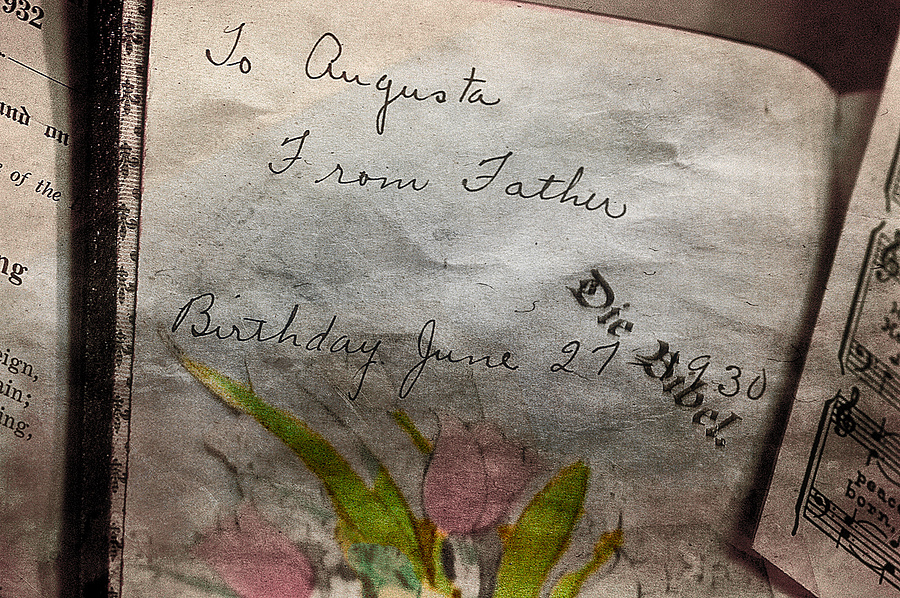 1932
and on
of the
ng
eign,
ain;
ing,
To Augusta
From Father
Birthday June 27 1930
Die Bibel.
peace
born,